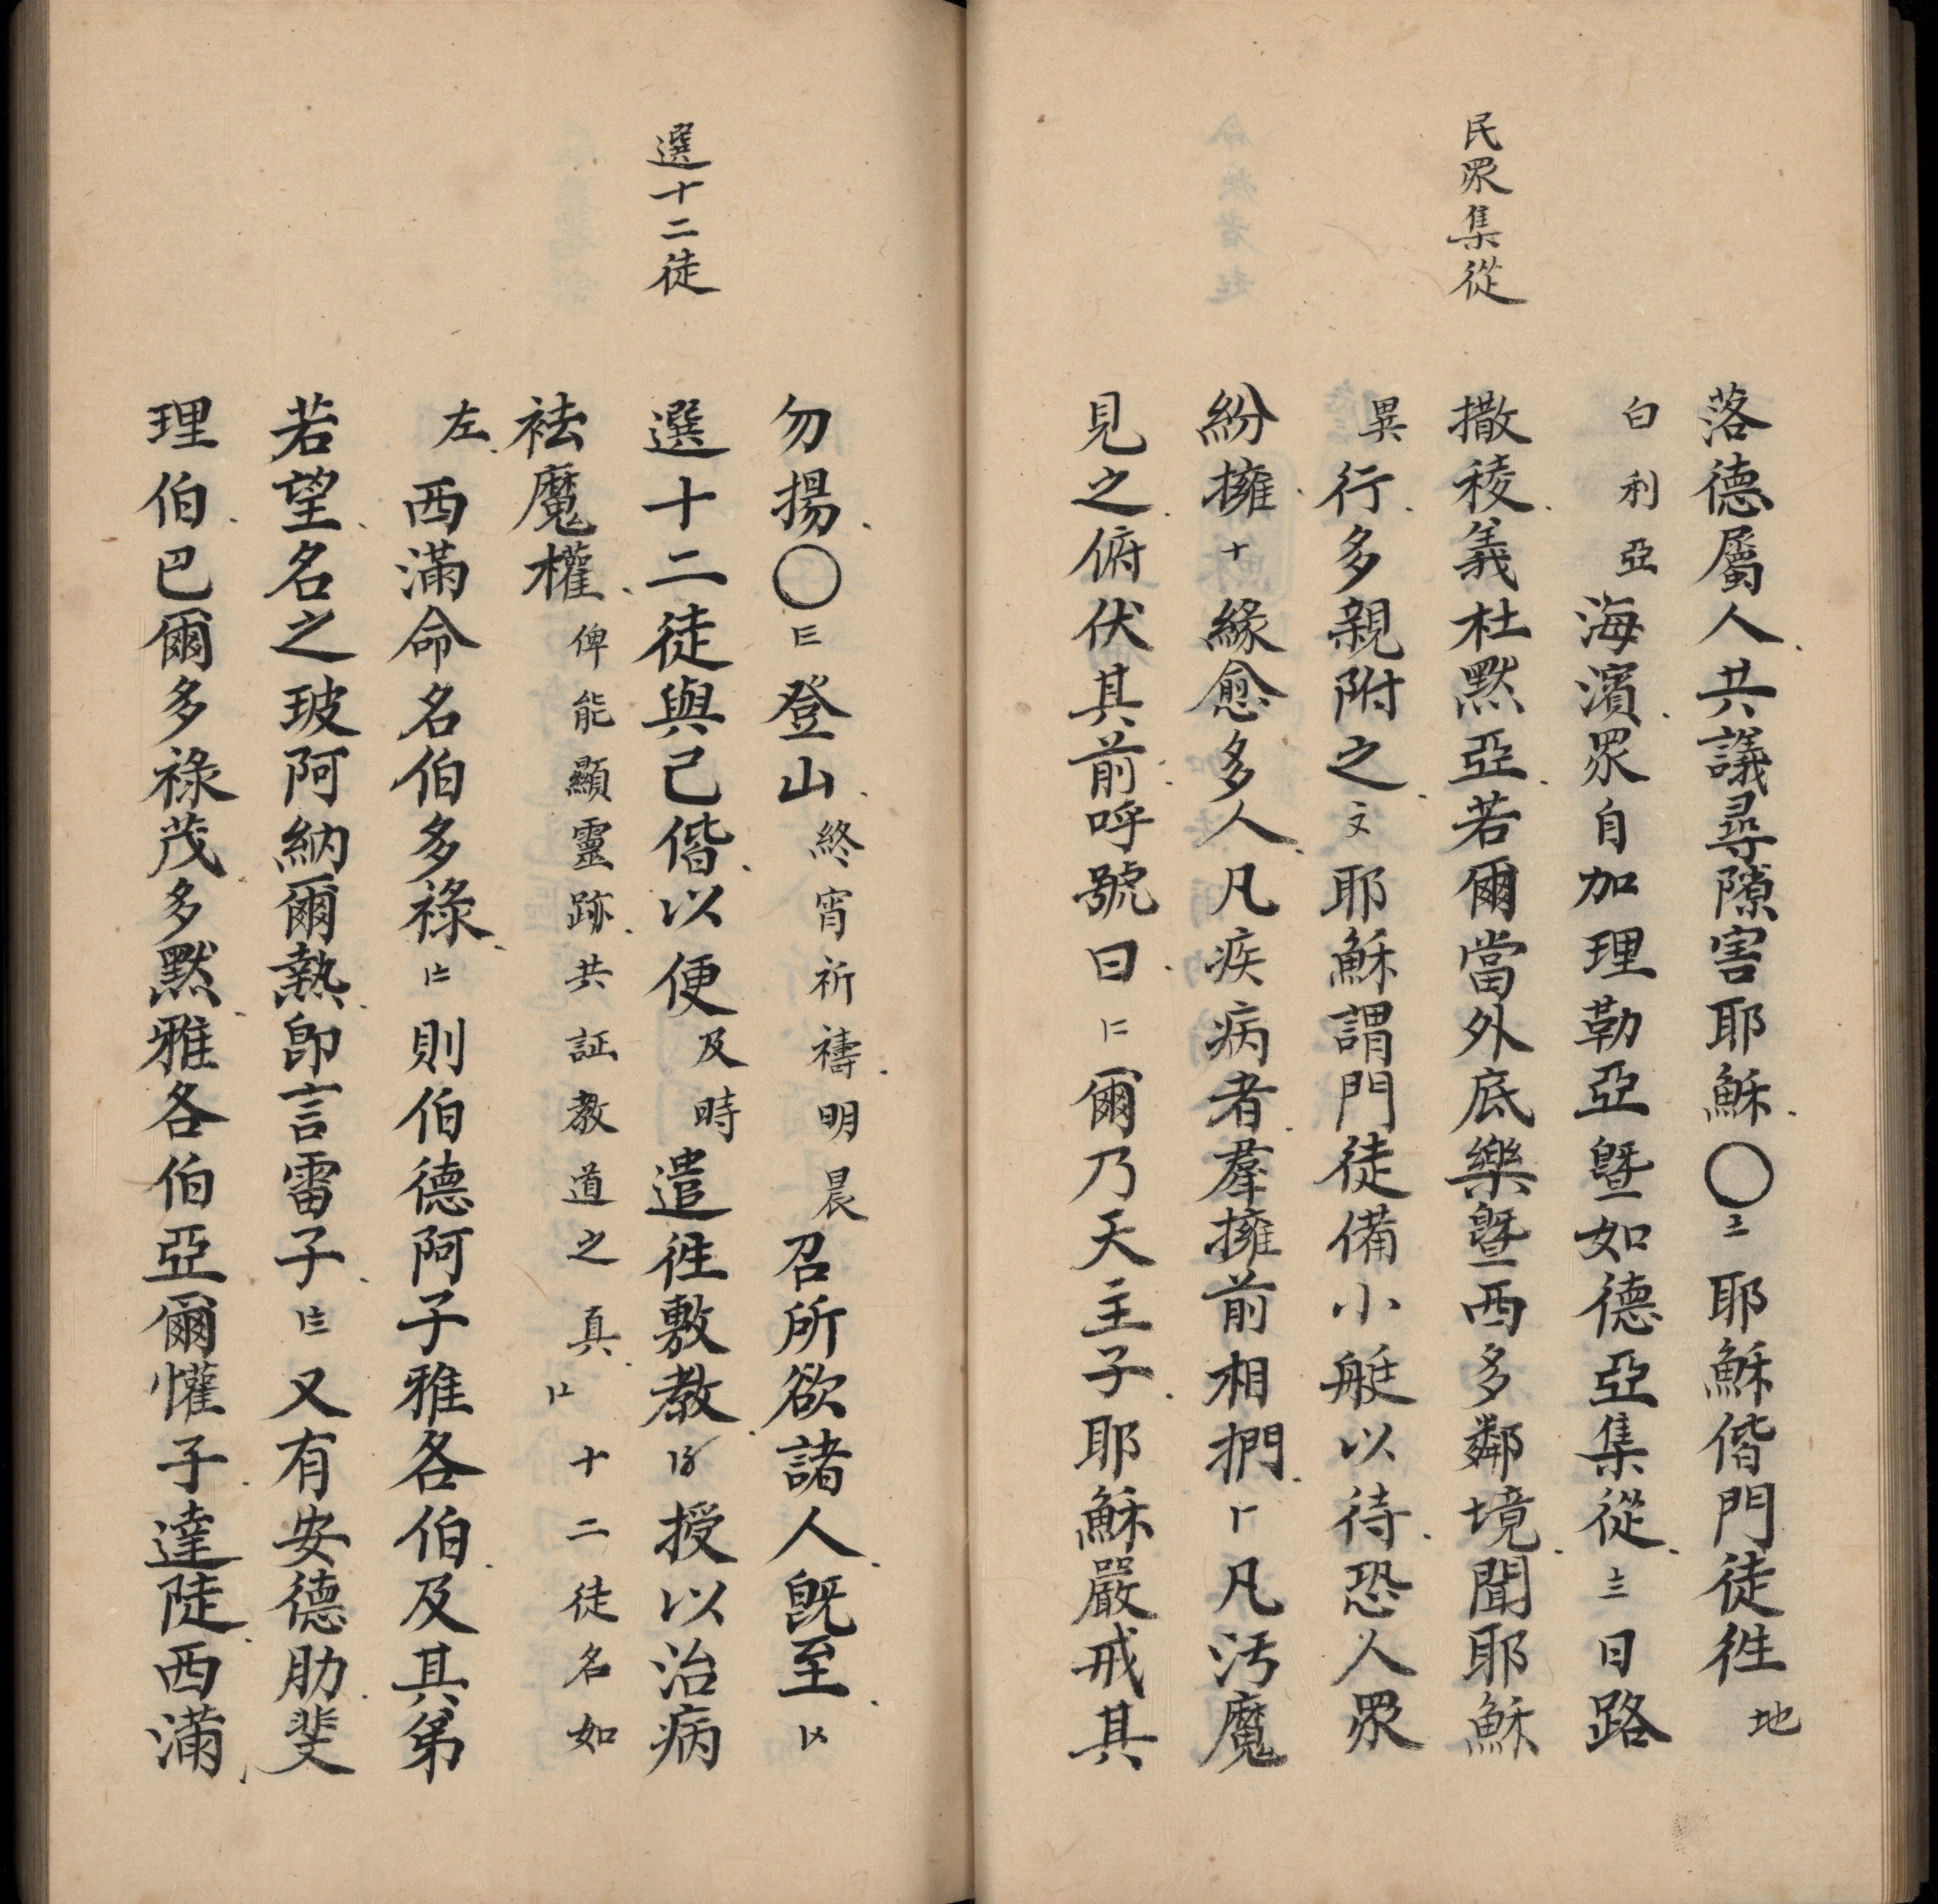 民眾集從
落德屬人共議尋隙害耶穌〇〧耶穌偕門徒徃地
白利亞海濱眾自加理勒亞曁如德亞集從〨日路
撒稜義杜默亞若爾當外底樂曁西多鄰境聞耶穌
異行多親附之〩耶穌謂門徒備小艇以待恐人眾
紛擁十緣愈多人凡疾病者羣擁前相捫〡凡汚魔
見之俯伏其前呼號曰〢爾乃天主子耶穌嚴戒其
選十二徒
勿揚〇〣登山終宵祈禱明晨召所欲諸人旣至〤
選十二徒與己偕以便及時遣徃敷教〥授以治病
袪魔權俾能顯靈跡共証教道之真〦十二徒名如
左西滿命名伯多祿〧則伯德阿子雅各伯及其弟
若望名之玻阿納爾熱卽言雷子〨又有安德肋斐
理伯巴爾多祿茂多默雅各伯亞爾懽子達陡西滿